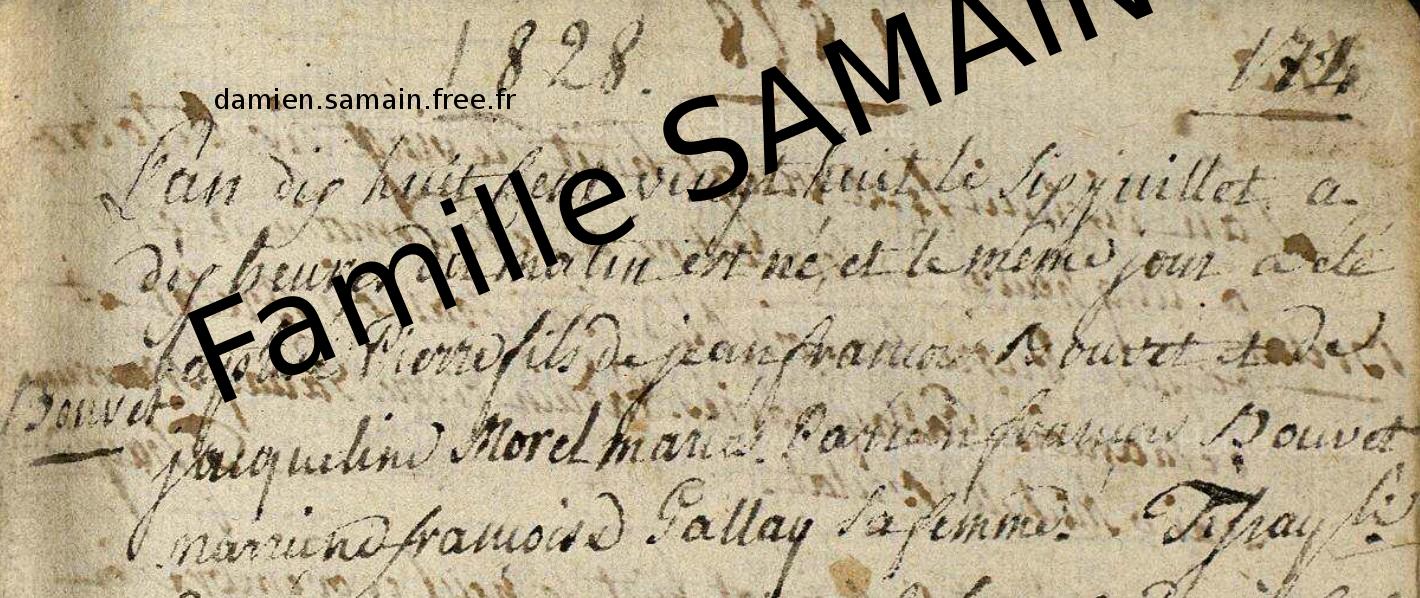 1828.
174
damien.samain.free.fr
Famille SAMAIN
L'an dix huit cent vingt huit le six juillet a
dix heures du matin est né, et le même jour a été
baptisé Pierre fils de jean françois Bouvet et de
Bouvet
jacqueline Morel mariés. Parrain françois Bouvet
marriene françoise Gallay sa femme.